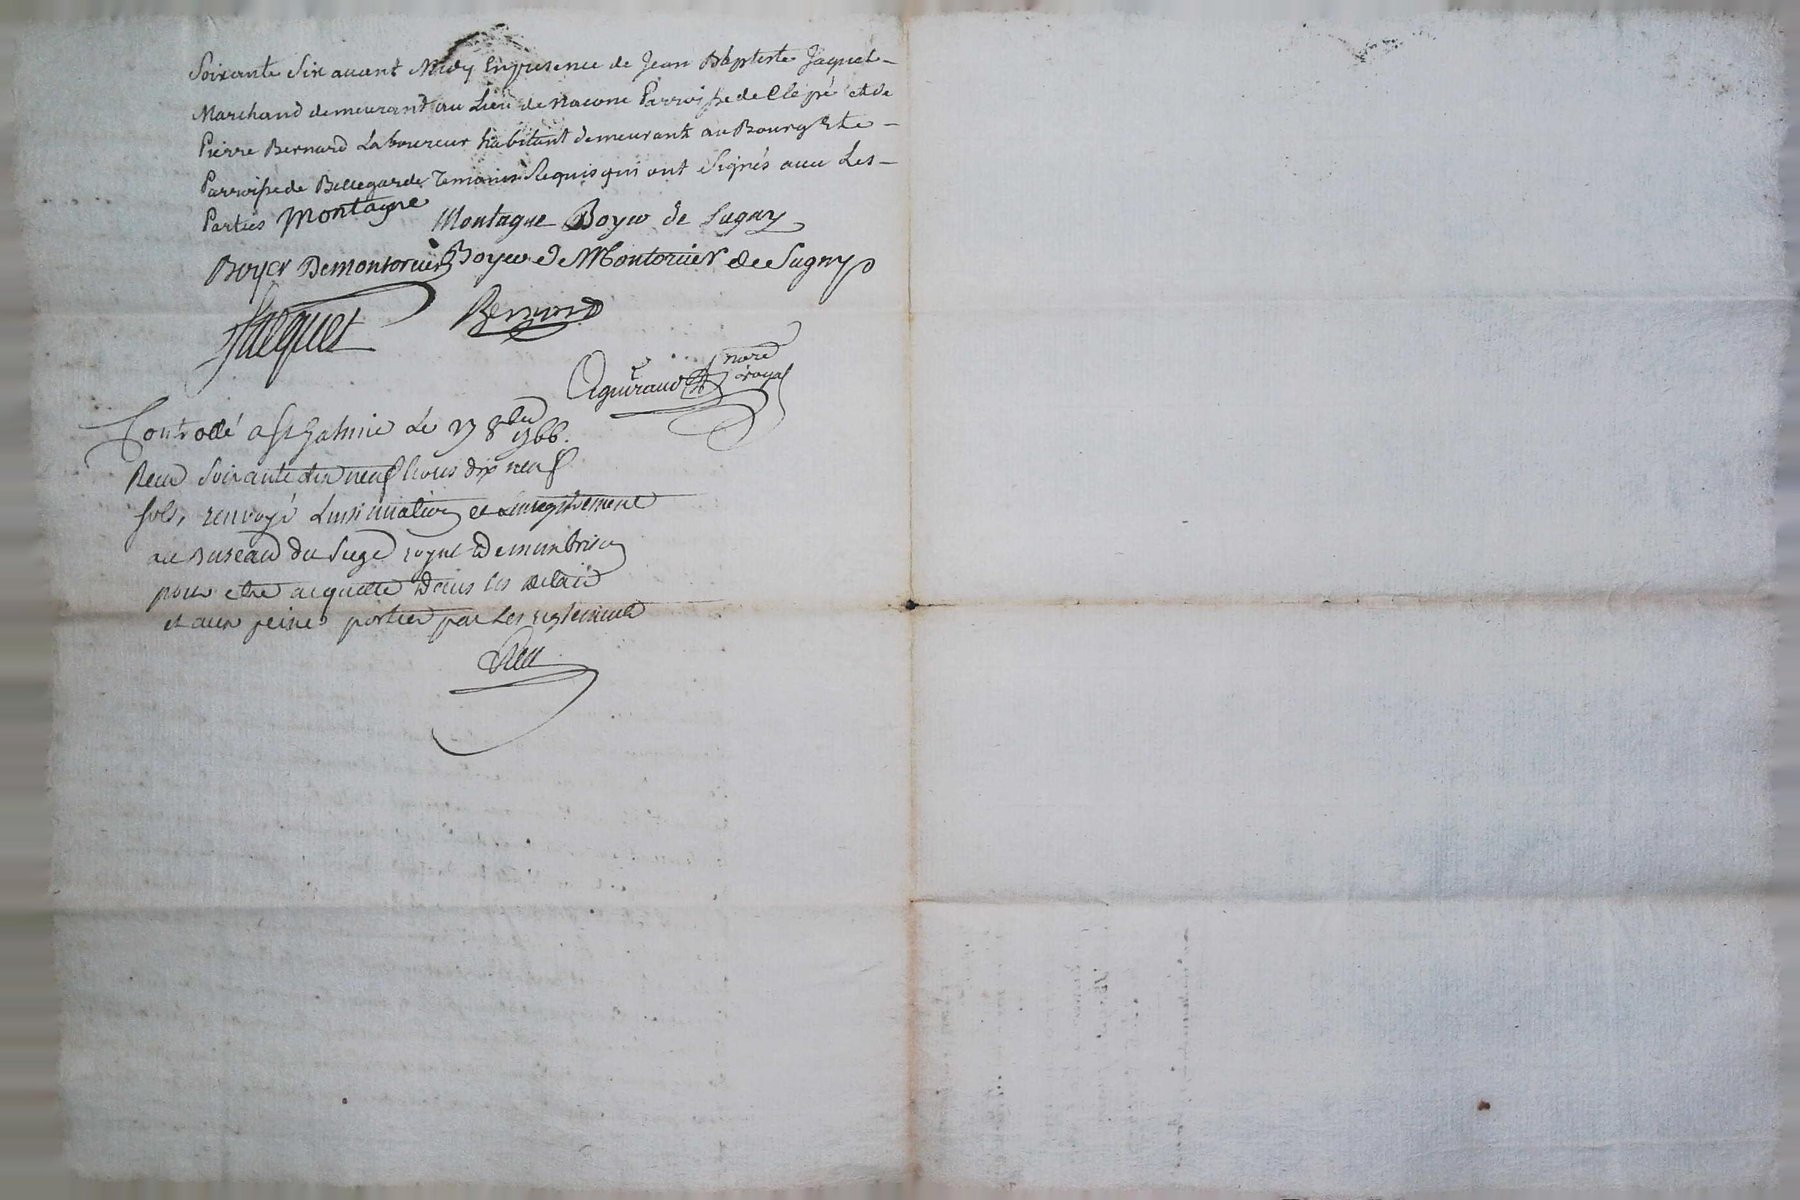 Soixante Six avant Midy En presence de Jean Baptiste Jaquet
Marchand demeurant au Lieu de Nacone Parroisse de Clepé et de
Pierre Bernard Laboureur habitant demeurant au Bourg Et
Parroisse de Bellegarde Temoins Requis qui ont Signés avec Les
Parties Montagne Montagne Boyer de Sugny
Boyer Demontorcier Boyer de Montorcier de Sugny
Jacquet Bernard
Aguiraud nore royal
Controllé a St Galmier Le 8bre 1766.
Recu Soixante dix neuf livres dix neuf
sols, renvoyé Linsinuation et Lenregistrement
au Bureau du Siege royal De montbrison
pour etre acquitté Dans les delais
et aux peines portées par Les reglements